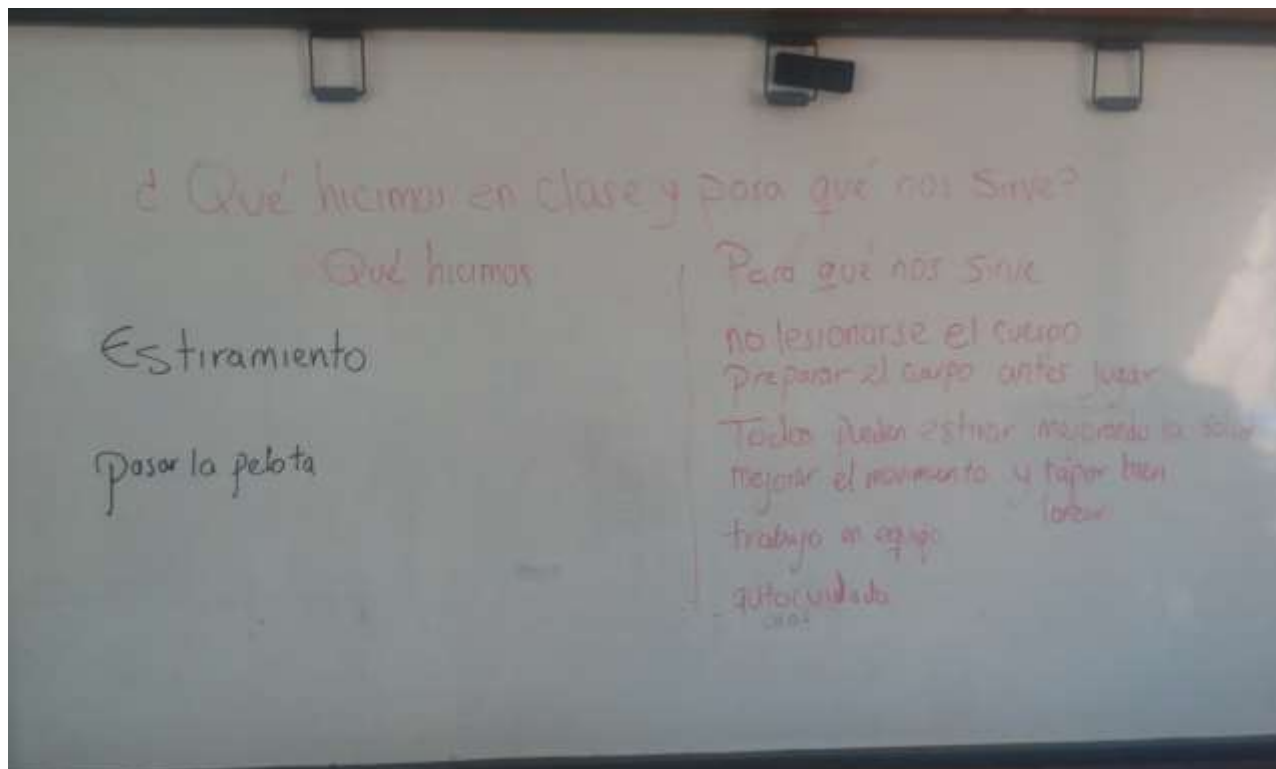 ¿Qué hicimos en clase y para qué nos sirve?
Qué hicimos
Estiramiento
pasar la pelota
Para qué nos sirve
no lesionarse el cuerpo
preparar el cuerpo antes jugar
Todos pueden estirar mejorando la
mejorar el movimiento y bien
trabajo en equipo
autocuidado